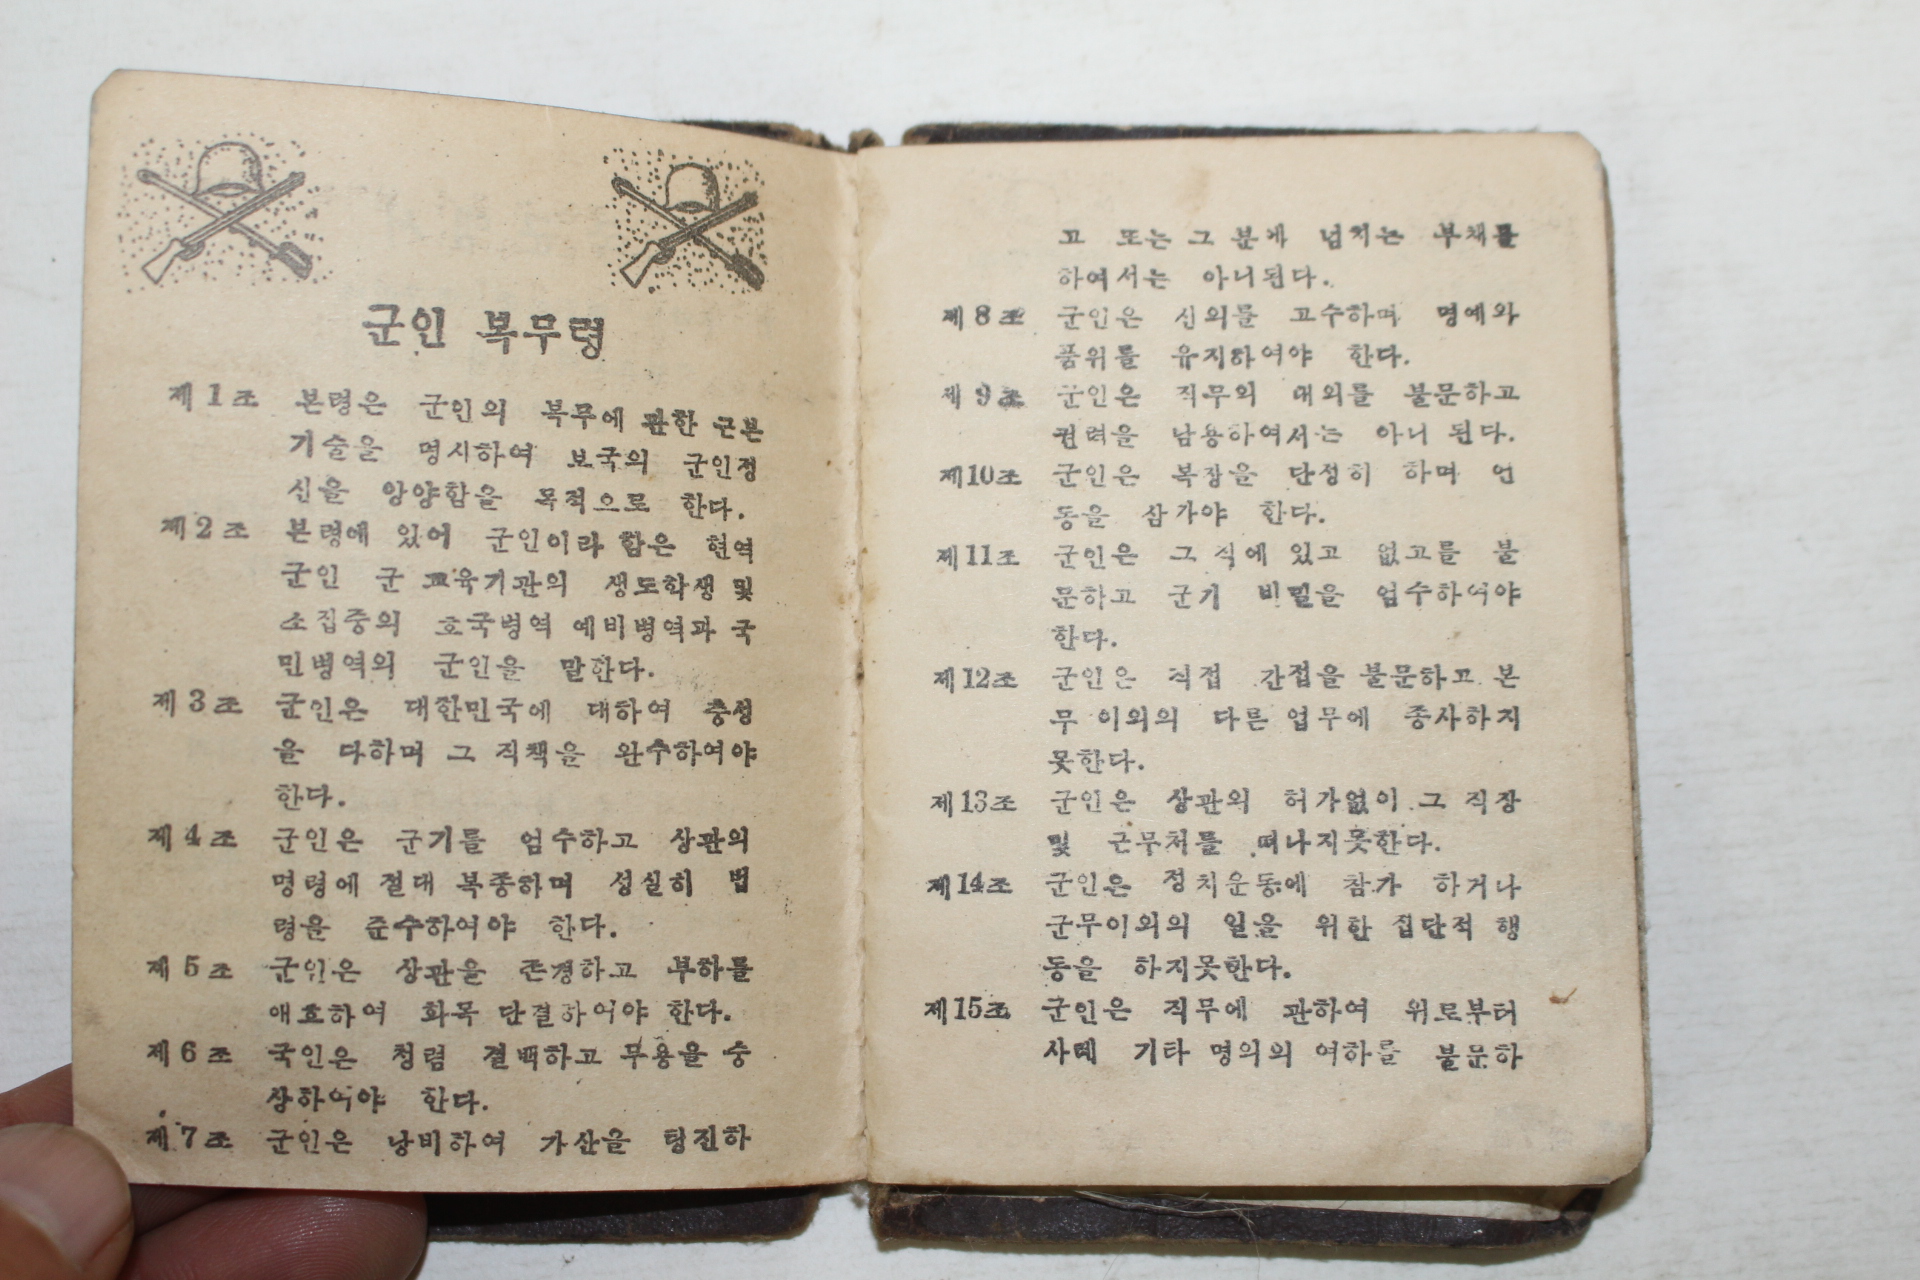 군인 복무령
제1조 본령은 군인의 복무에 관한 근본
기술을 명시하여 보국의 군인정
신을 앙양함을 목적으로 한다.
제2조 본령에 있어 군인이라 함은 현역
군인 군 교육기관의 생도학생 및
소집중의 호국병역 예비병역과 국
민병역의 군인을 말한다.
제3조 군인은 대한민국에 대하여 충성
을 다하며 그 직책을 완수하여야
한다.
제4조 군인은 군기를 엄수하고 상관의
명령에 절대 복종하며 성실히 법
령을 준수하여야 한다.
제5조 군인은 상관을 존경하고 부하를
애호하여 화목 단결하여야 한다.
제6조 국인은 청렴 결백하고 무용을 숭
상하여야 한다.
제7조 군인은 낭비하여 가산을 탕진하
고 또는 그 분에 넘치는 부채를
하여서는 아니된다.
제8조 군인은 신의를 고수하며 명예와
품위를 유지하여야 한다.
제9조 군인은 직무의 대외를 불문하고
권력을 남용하여서는 아니 된다.
제10조 군인은 복장을 단정히 하며 언
동을 삼가야 한다.
제11조 군인은 그 직에 있고 없고를 불
문하고 군기 비밀을 엄수하여야
한다.
제12조 군인은 직접 간접을 불문하고 본
무 이외의 다른 업무에 종사하지
못한다.
제13조 군인은 상관의 허가없이 그 직장
및 근무처를 떠나지못한다.
제14조 군인은 정치운동에 참가 하거나
군무이외의 일을 위한 집단적 행
동을 하지못한다.
제15조 군인은 직무에 관하여 위로부터
사례 기타 명의의 여하를 불문하